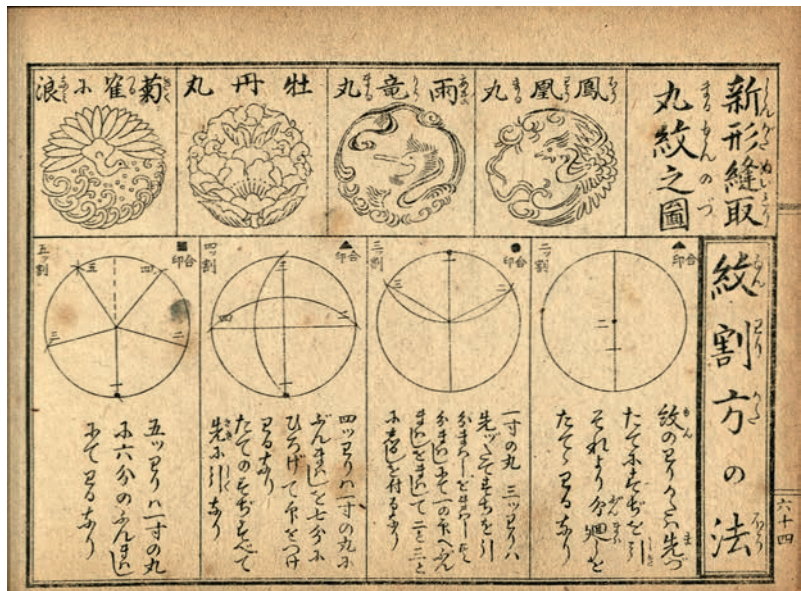 新形縫取
丸紋之圖
鳳凰丸
雨竜丸
牡丹丸
菊寉に浪
紋割方の法
六十四
合印
二ッ割
一
二
紋のわりかたハ先づ
たてにすぢを引
それより分廻しを
たてゝわるなり
合印
三ッ割
一
二
三
一寸の丸 三ッわりハ
先ッたてすぢを引
まはして二と三と
に印を付るなり
合印
四ッ割
一
二
三
四
四ッわりハ一寸の丸に
ぶんまはしを七分に
ひろげて印をつけ
わるなり
たてのすぢすべて
先に引なり
合印
五ッ割
一
二
三
四
五
五ッわりハ一寸の丸
に六分のぶんまはし
にてわるなり